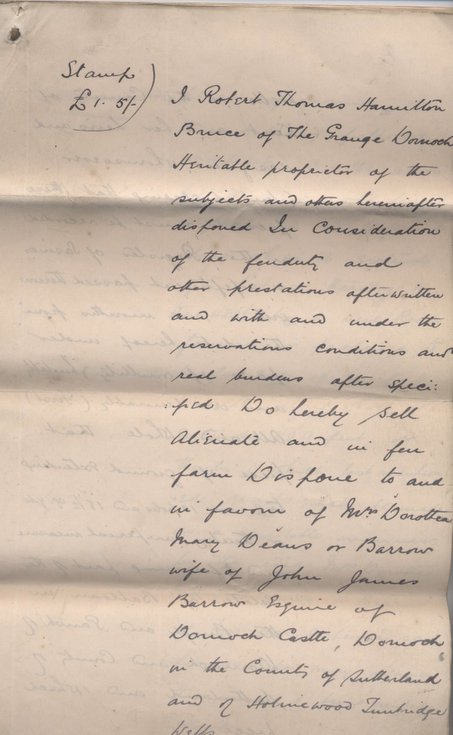 Stamp
£1. 5/-
I Robert Thomas Hamilton
Bruce of The Grange Dornoch
Heritable proprietor of the
subjects and others hereinafter
disponed In Consideration
of the feuduty and
other prestations afterwritten
and with and under the
reservations conditions and
real burdens after speci:
:fied Do hereby Sell
Alienate and in feu
farm Dispone to and
in favour of Mrs Dorothea
Mary Deans or Barrow
wife of John James
Barrow Esquire of
Dornoch Castle, Dornoch
in the County of Sutherland
and of Holmewood Tunbridge
Wells